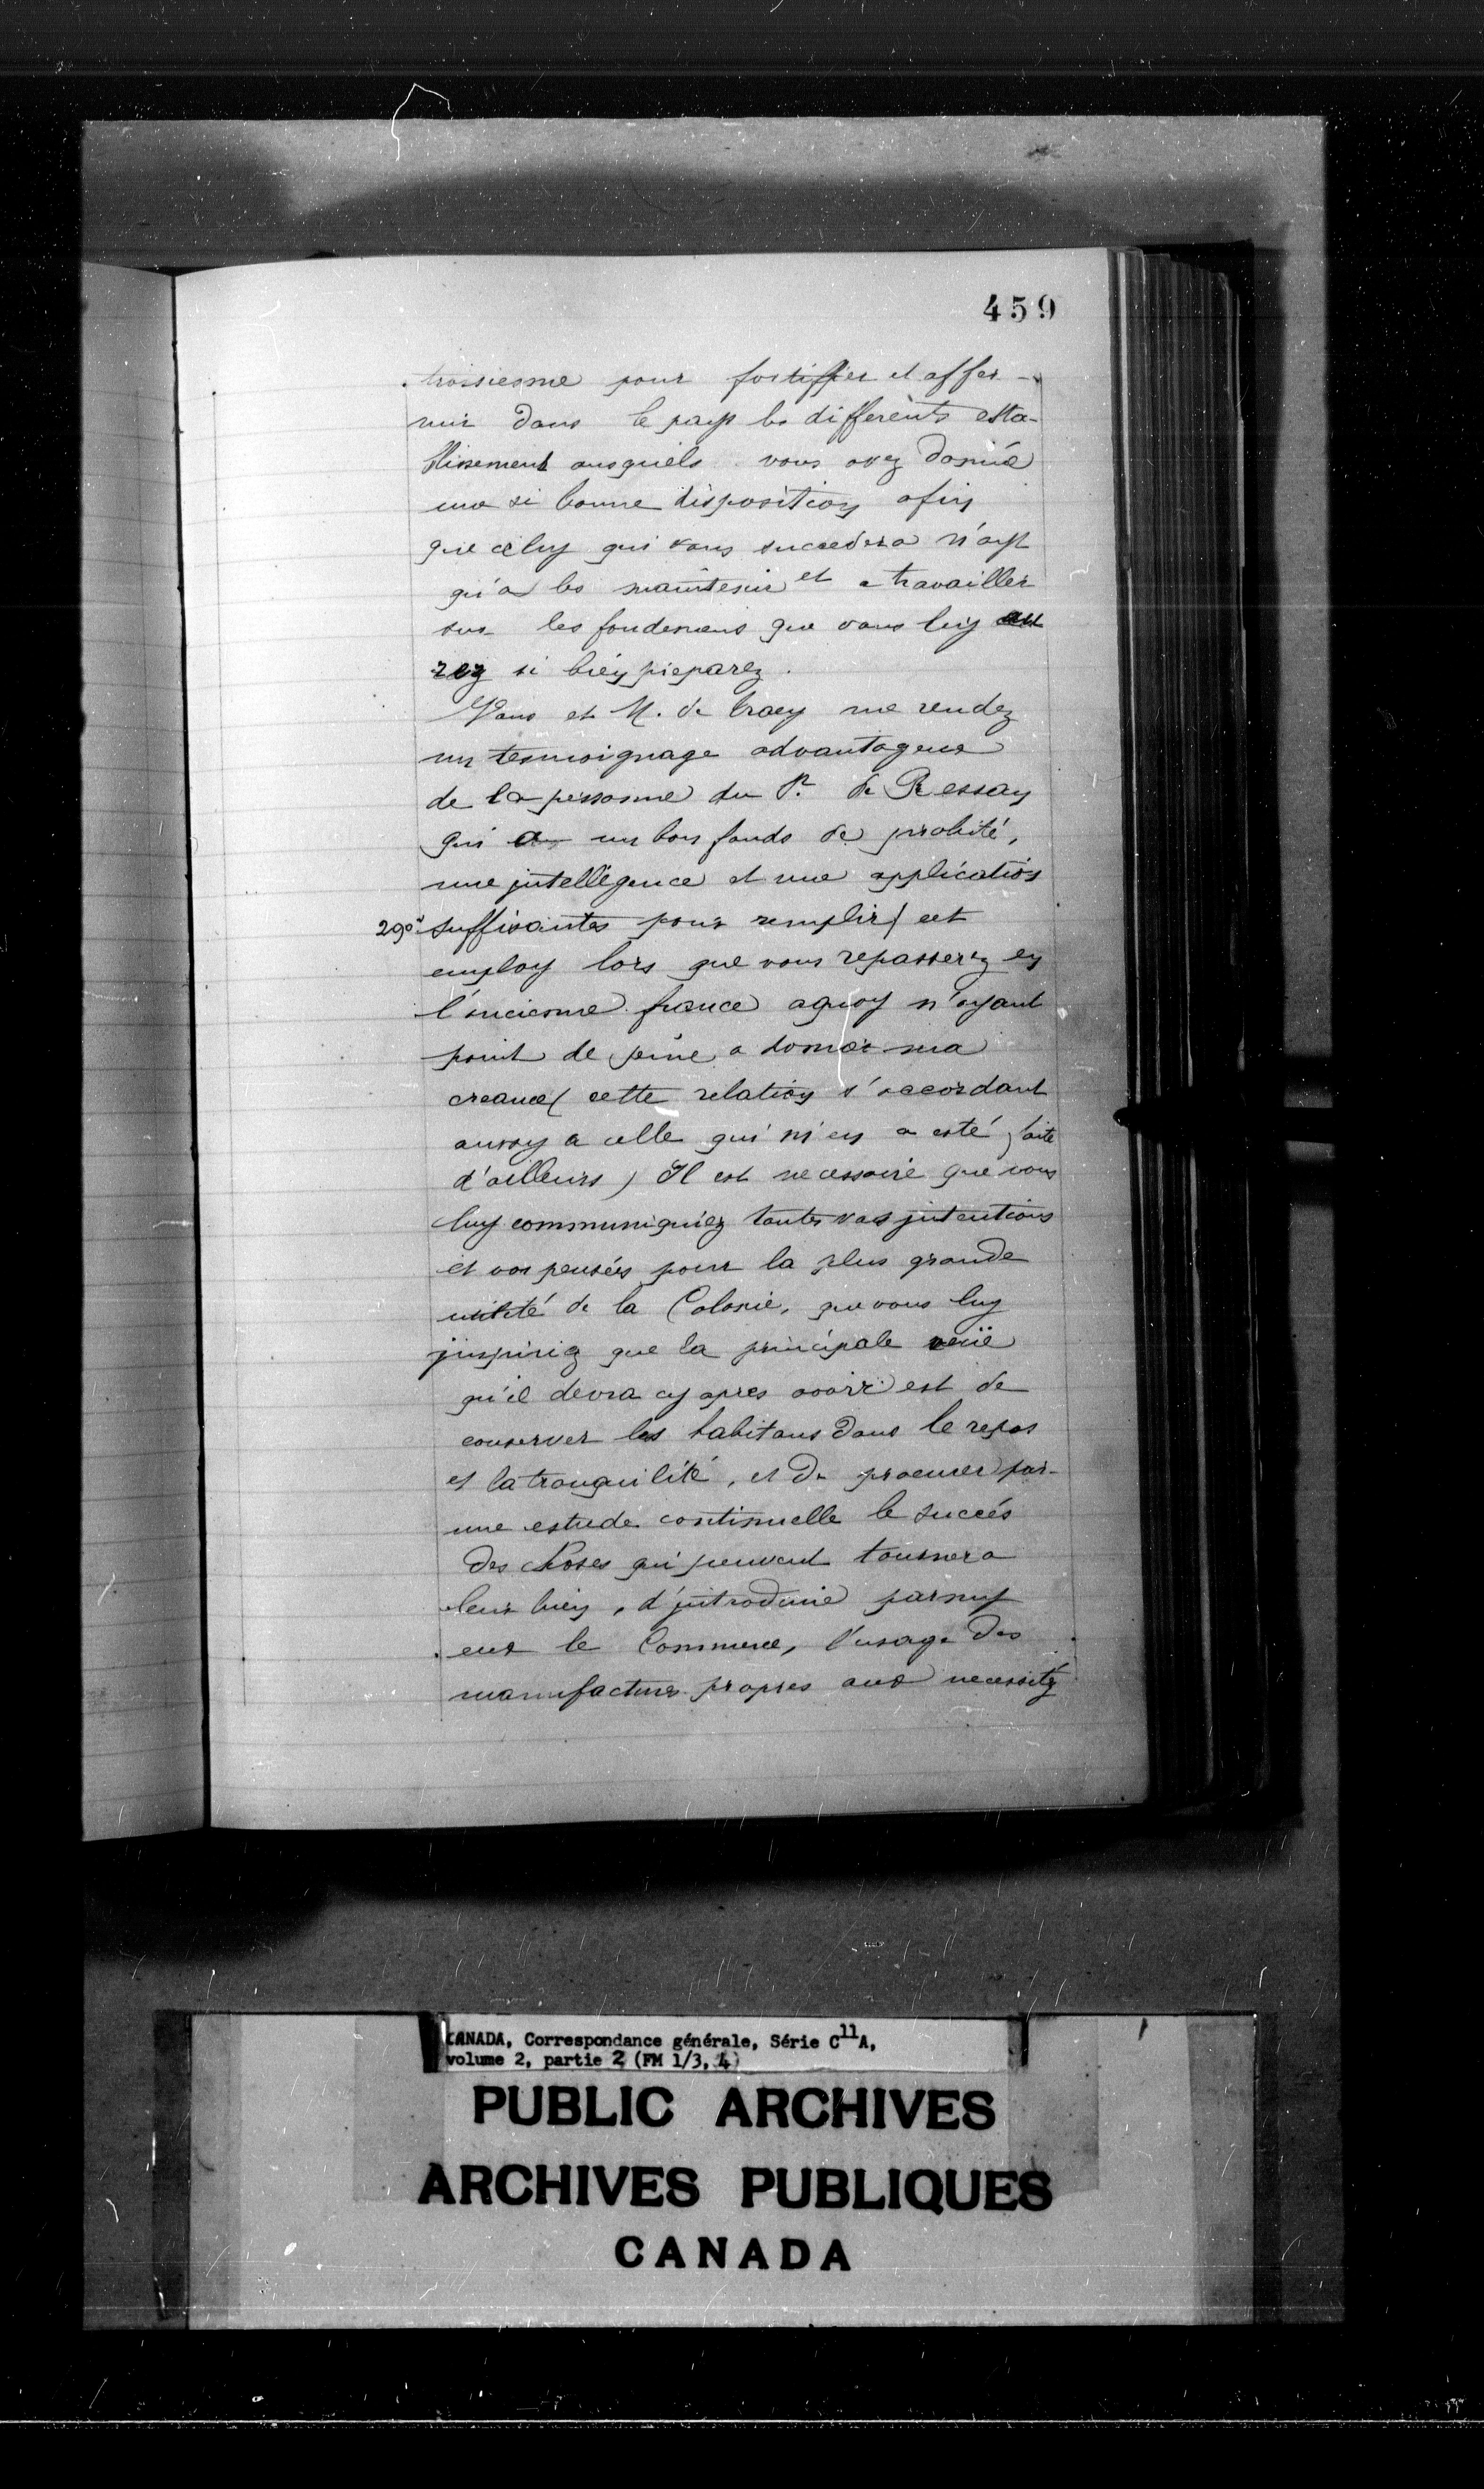 459
troisiesme pour fortiffier et affer-
mir dans le pays les differents esta-
blissement ausquels vous avez donné
une si bonne disposition afin
que celuy qui vous succedera n'ayt
qu'a les maintenir et a travailler
sur les fondemens que vous luy au
rez si bien preparez.
Vous et M. de Tracy me rendez
un tesmoignage advantageux
de la personne du Sr. de Ressay
qui a un bon fonds de probité,
une jntelligence et une application
290v suffisantes pour remplir cet
employ lors que vous repasserez en
l'ancienne france aquoy n'ayant
point de peine a donner ma
creance (cette relation s'accordant
aussy a celle qui m'en a esté faite
d'ailleurs) Il est necessaire que vous
luy communiquiez toutes vos jntentions
et vos pensées pour la plus grande
utilité de la Colonie, que vous luy
jnspiriez que la principale veüe
qu'il devra cy apres avoir est de
conserver les habitans dans le repos
et la tranquilité, et de procurer par
une estude continuelle le succés
des choses qui peuvent tourner a
leur bien, d'jntroduire parmy
eux le Commerce, l'usage des
manufactures propres aux necessitez
CANADA, Correspondance générale, Série C11A,
volume 2, partie 2 (FM 1/3, 4)
PUBLIC ARCHIVES
ARCHIVES PUBLIQUES
CANADA